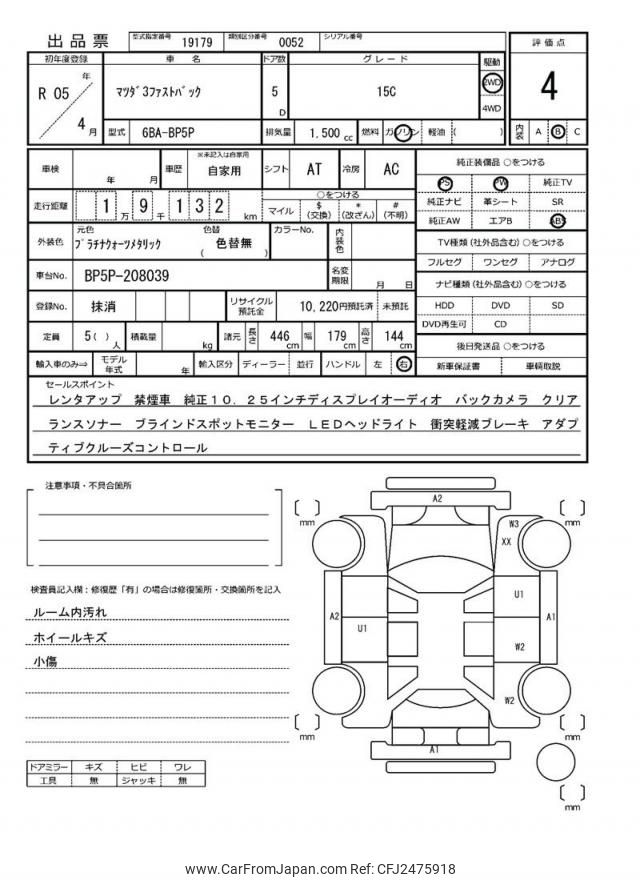 出品票 型式指定番号 19179 類別区分番号 0052 シリアル番号
初年度登録 車名 ドア数 グレード 駆動 評価点
R 05 年 4 月 マツダ3ファストバック 5 D 15C 2WD 4WD 4
型式 6BA-BP5P 排気量 1,500 cc 燃料 ガソリン 軽油 ( ) 内装 A B C
車検 年 月 車歴 ※未記入は自家用 自家用 シフト AT 冷房 AC
走行距離 1 万 9 千 1 3 2 km ○をつける マイル $ (交換) * (改ざん) # (不明)
外装色 元色 プラチナクォーツメタリック 色替 ( 色替無 ) カラーNo. 内装色
車台No. BP5P-208039 名変期限 月 日
登録No. 抹消 リサイクル預託金 10,220円預託済 未預託
定員 5( ) 人 積載量 kg 諸元 長さ 446 cm 幅 179 cm 高さ 144 cm
輸入車のみ⇒ モデル年式 年 輸入区分 ディーラー 並行 ハンドル 左 右
純正装備品 ○をつける
PS PW 純正TV
純正ナビ 革シート SR
純正AW エアB ABS
TV種類 (社外品含む) ○をつける
フルセグ ワンセグ アナログ
ナビ種類 (社外品含む) ○をつける
HDD DVD SD
DVD再生可 CD
後日発送品 ○をつける
新車保証書 車輌取説
セールスポイント
レンタアップ 禁煙車 純正10.25インチディスプレイオーディオ バックカメラ クリア
ランスソナー ブラインドスポットモニター LEDヘッドライト 衝突軽減ブレーキ アダプ
ティブクルーズコントロール
注意事項・不具合箇所
検査員記入欄：修復歴「有」の場合は修復箇所・交換箇所を記入
ルーム内汚れ
ホイールキズ
小傷
ドアミラー キズ ヒビ ワレ
工具 無 ジャッキ 無
A2
mm mm
W3
XX
U1
A2 A1
U1
W2
W2
mm mm
A1
mm
www.CarFromJapan.com Ref: CFJ2475918